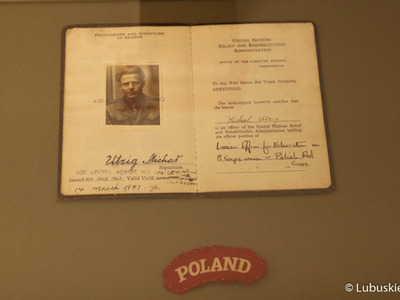 PHOTOGRAPH AND SIGNATURE
OF BEARER
Utzig Michał
Signature
Valid Until
14 March 1947
UNITED NATIONS
RELIEF AND REHABILITATION
ADMINISTRATION
OFFICE OF THE DIRECTOR GENERAL
WASHINGTON
TO ALL WHO SHALL SEE THESE PRESENTS,
GREETINGS:
The undersigned herewith certifies that
the bearer
Michael Utzig
is an officer of the United Nations Relief
and Rehabilitation Administration holding
the official position of
Liaison Officer for Education in
5 Corps area - Polish Red
Cross
POLAND
© Lubuskie